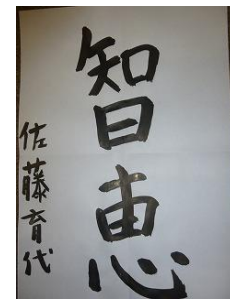 智恵
佐藤育代